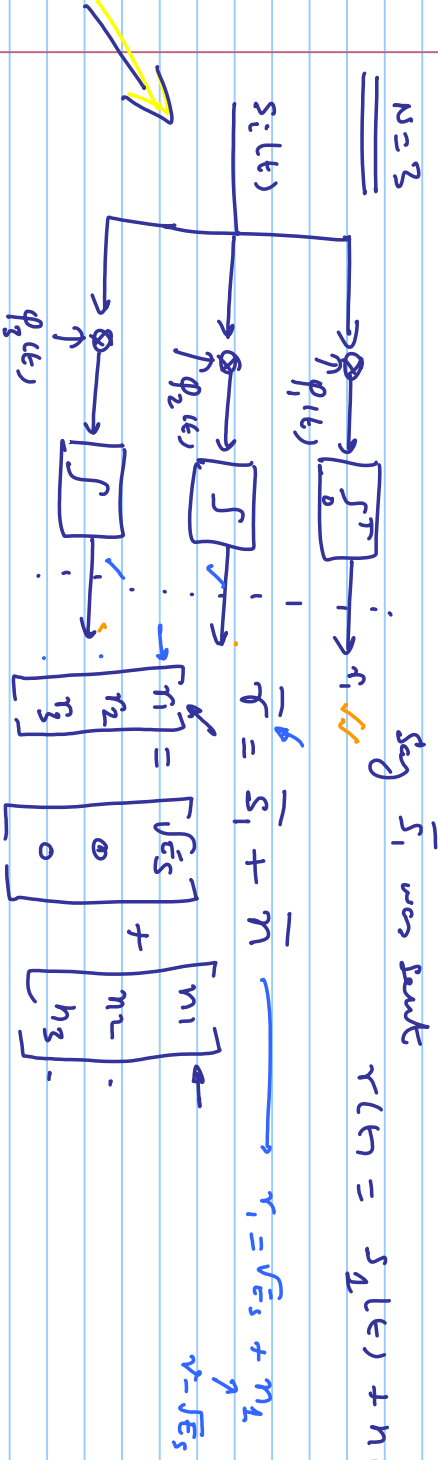 N=3
Say s̄₁ was sent
r(t) = s₁(t) + n
sᵢ(t)
φ₁(t)
∫₀ᵀ
r₁
φ₂(t)
∫
φ₃(t)
∫
r̄ = s̄₁ + n̄
r₁ = √Es + n₁
r-√Es
[r₁ r₂ r₃] = [√Es 0 0] + [n₁ n₂ n₃]